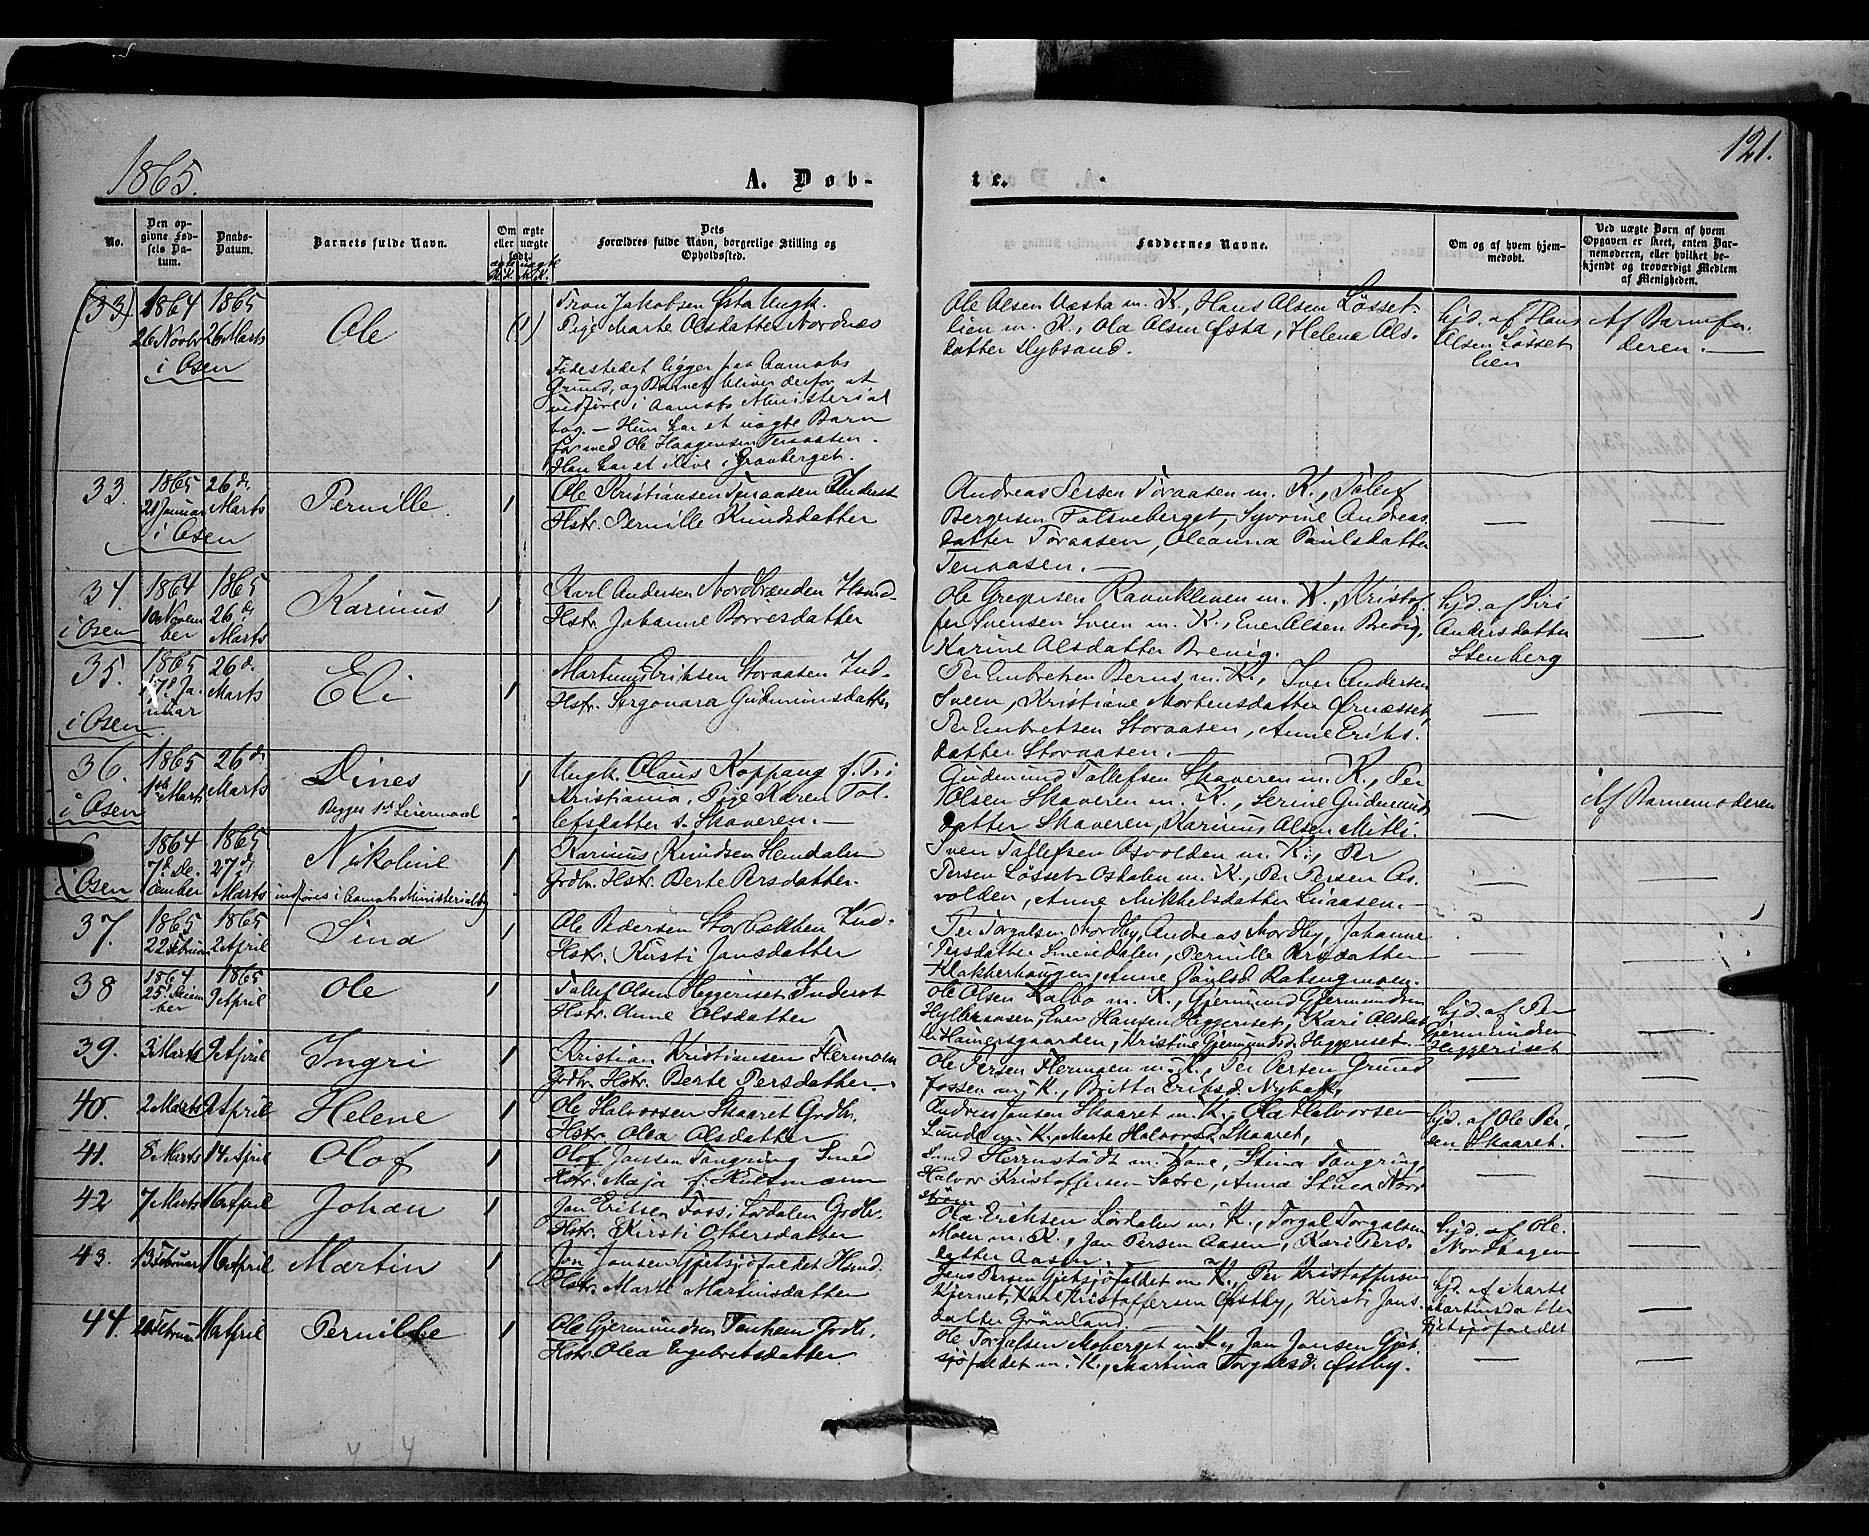 1865.
A. Døb-
te.
121.
No.
Den op-
givne Fød-
sels Da-
tum.
Daabs-
Datum.
Barnets fulde Navn.
Om ægte
eller uægte
født.
ægte uægte
M. K. M. K.
Dets
Forældres fulde Navn, borgerlige Stilling og
Opholdssted.
Faddernes Navne.
Om og af hvem hjem-
medøbt.
Ved uægte Børn af hvem
Opgaven er skeet, enten Bar-
nemoderen, eller hvilket be-
kjendt og troværdigt Medlem
af Menigheden.
(33)
1864
26 Novbr
i Osen
1865
26 Marts
Ole
(1)
Tron Jakobsen Østa Ungk.
Pige Marte Olsdatter Nordnæs
Fødestedet ligger paa Aamots
Grund, og Barnet bliver derfor at
indføre i Aamots Ministerial
bog. — Hun har et uægte Barn
før med Ole Haagensen Tenaasen.
Han har et ilive i Gravberget.
Ole Olsen Næsta m. K., Hans Olsen Løsset-
lien m. K., Ola Olsen Østa, Helene Ols-
datter Nybsand.
hjd. af Hans
Olsen Løsset
lien
Af Barnefa-
deren. —
33.
1865
21 Januar
i Osen
26 d.
Marts
Pernille
1
Ole Kristiansen Tenaasen Inderst
Hstr. Pernille Knudsdatter
Andreas Persen Toraasen m. K., Tollef
Bergersen Falsneberget, Syverine Andreas
datter Toraasen, Oleanna Paulsdatter
Tenaasen. —
34.
i Osen
1864
10 Novem
ber
1865
26 d.
Marts
Karinus
1
Karl Andersen Nordstrænden Hsmd
Hstr. Johanne Børresdatter
Ole Gregersen Ravnkleven m. K., Kristof
fer Svensen Sveen m. K., Even Olsen Brevig,
Karine Olsdatter Brevig.
hjd. af Siri
Andersdatter
Stenberg
35.
i Osen
1865
17 d. Ja-
nuar
26 d.
Marts
Eli
1
Martinus Eriksen Storaasen Ind-
Hstr. Sergonara Gudmundsdatter
Per Embretsen Berns m. K., Iver Andersen
Sveen, Kristiane Mortensdatter Ørnæsset,
Per Embretsen Storaasen, Anne Eriks-
datter Storaasen. —
36.
i Osen
1865
1ste Marts
26 d.
Marts
Dines
Begges 1st Leiermaal
1
Ungk. Claus Koppang f. T. i
Kristiania, Pige Karen Tol-
lefsdatter t. Skaveren. —
Gudmund Tollefsen Skaveren m. K., Per
Olsen Skaveren m. K., Serine Gudmunds
datter Skaveren, Karinus Olsen Mitli.
Af Barnemoderen
i Osen
1864
7 d. De-
cember
1865
27 d.
Marts
Nikoline
indføres i Aamots Ministerialbog
1
Karinus Knudsen Hemdalen
Grdbr. Hstr. Berte Persdatter.
Sven Tollefsen Osvolden m. K., Per
Persen Løsset Osdalen m. K., Per Persen Os-
volden, Anne Mikkelsdatter Liaasen. —
37.
1865
22 Februar
1865
2 April
Sina
1
Ole Pedersen Storbækken Ind-
Hstr. Kirsti Jansdatter
Per Torgalsen Nordby, Andreas Nordby, Johanne
Persdatter Linnedalen, Pernille Persdatter
Klakkerhaugen, Anne Paulsd. Ratengmoen.
38
1864
25 Decem
ber
1865
9 April
Ole
1
Tollef Olsen Heggeriset Inderst
Hstr. Anne Olsdatter
Ole Olsen Kalbo m. K., Gjermund Gjermundsen
Hylleraasen, Even Hansen Heggeriset, Kari Olsdat-
ter Hamersgaarden, Kristine Gjermundsd. Heggeriset.
hjd. af Per
Gjermundsen
Heggeriset
39.
3 Marts
9 April
Ingri
1
Kristian Kristiansen Flermoen
Grdbr. Hstr. Berte Persdatter
Ole Persen Flermoen m. K., Per Persen Grund
fossen m. K., Britta Eriksd. Nybak.
40.
2 Marts
9 April
Helene
1
Ole Halvorsen Skaaret Grdbr.
Hstr. Olea Olsdatter
Andreas Jansen Skaaret m. K., Ola Halvorsen
Lunde m. K., Marte Halvorsd. Skaaret,
hjd. af Ole Per-
sen Skaaret.
41.
8 Marts
14 April
Olof
1
Olof Janssen Tangring Smed
Hstr. Maja f. Hultmann
Smed Herrnstädt m. Kone, Stina Tangring,
Halvor Kristoffersen Sætre, Anna Stina Nord
strøm
42
7 Marts
16 April
Johan
1
Jan Eriksen Foss i Lørdalen Grdbr.
Hstr. Kirsti Ottersdatter
Ola Eriksen Lørdalen m. K., Torgal Torgalsen
Moen m. K., Jan Persen Aasen, Kari Pers-
datter Aasen.
hjd. af Ole
Nordhagen
43.
13 Februar
16 April
Martin
1
Jon Jansen Gjetsjøfaldet Hsmd.
Hstr. Marte Martinsdatter
Jans Persen Gjetsjøfaldet m. K., Per Kristoffersen
Kjernet, Karl Kristoffersen Østby, Kirsti Jans-
datter Grønland.
hjd. af Marte
Martinsdatter
Gjetsjøfaldet
44.
20 Februar
16 April
Pernille
1
Ole Gjermundsen Tenhem Grdbr.
Hstr. Olea Engebretsdatter
Ole Torgalsen Moberget m. K., Jan Jansen Gjet-
sjøfaldet m. K., Martina Torgalsd. Østby.